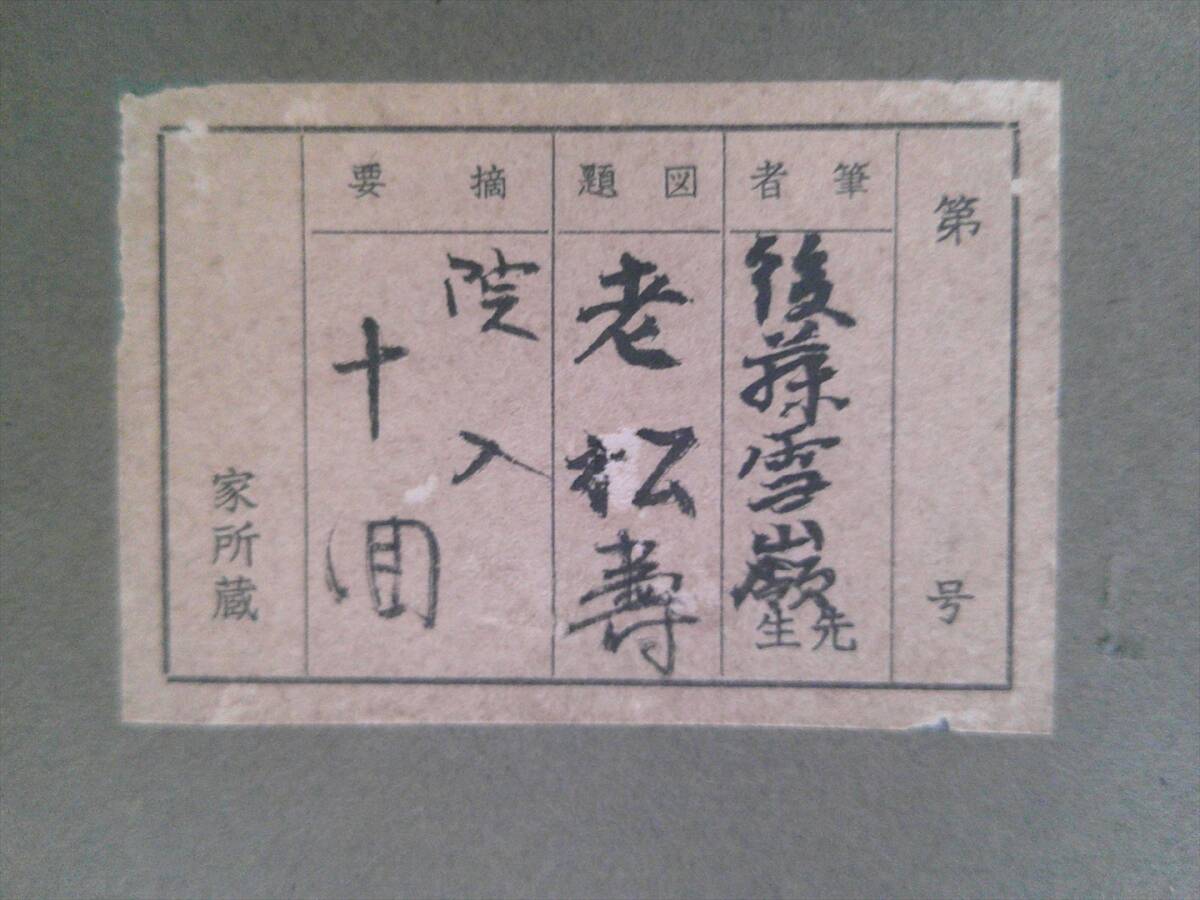 第 号
筆者
後藤雪巌先生
図題
老松壽
摘要
院入
十圓
家所蔵